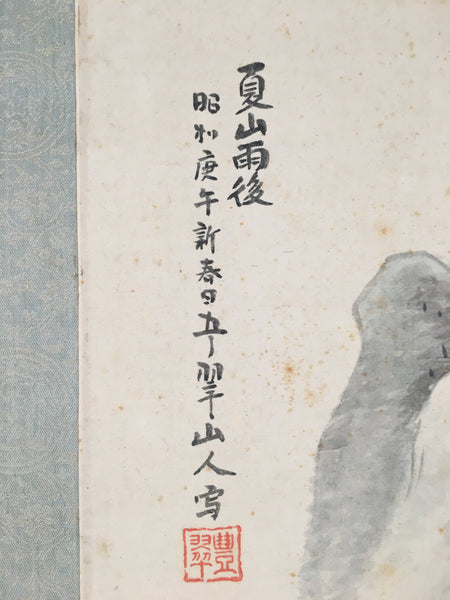 夏山雨後
昭和庚午新春日翠山人写
豐翠